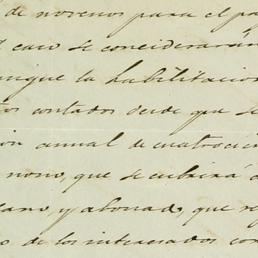 de novenos para el pa
l caso se considerarán
unque la habilitacion
os contados desde que se
ion annual de cuatrocien
nono, que se cubrirá
ano, y abonado, que re
o de los interesados con